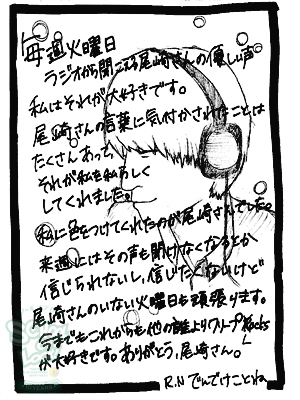 毎週火曜日
ラジオから聞こえる尾崎さんの優しい声
私はそれが大好きです。
尾崎さんの言葉に気付かされたことは
たくさんあって、
それが私を私らしく
してくれました。
私に色をつけてくれたのが尾崎さんでした。
来週にはその声も聞けなくなるとか
信じられないし、信じたくないけど
尾崎さんのいない火曜日も頑張ります。
今までもこれからも他の誰よりクリープ
が大好きです。ありがとう、尾崎さん。
R.N でんでけことね